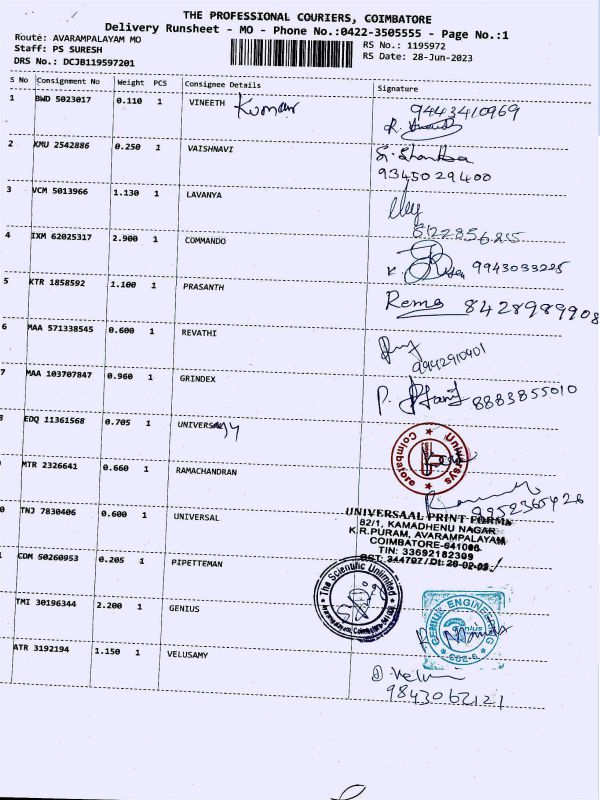 THE PROFESSIONAL COURIERS, COIMBATORE
Delivery Runsheet - MO - Phone No.:0422-3505555 - Page No.:1
Route: AVARAMPALAYAM MO
RS No.: 1195972
Staff: PS SURESH
RS Date: 28-Jun-2023
DRS No.: DCJB119597201
S No Consignment No Weight PCS Consignee Details Signature
1 BWD 5023017 0.110 1 VINEETH Kumar
9443410969
2 KMU 2542886 0.250 1 VAISHNAVI
9345029400
3 VCM 5013966 1.130 1 LAVANYA
8122856215
4 IXM 62025317 2.900 1 COMMANDO
9943033225
5 KTR 1858592 1.100 1 PRASANTH
Rema 8428989908
6 MAA 571338545 0.600 1 REVATHI
9942910401
7 MAA 103707847 0.960 1 GRINDEX
8883855010
EDQ 11361568 0.705 1 UNIVERSA
Universys
Coimbatore
MTR 2326641 0.660 1 RAMACHANDRAN
9952365426
0 TNJ 7830406 0.600 1 UNIVERSAL
UNIVERSAAL PRINT FORMS
82/1, KAMADHENU NAGAR
K.R.PURAM, AVARAMPALAYAM
COIMBATORE-641006
TIN: 33692182309
COM 50260953 0.205 1 PIPETTEMAN
The Scientific Unlimited
TMI 30196344 2.200 1 GENIUS
GENIUS ENGINEERING
genius
ATR 3192194 1.150 1 VELUSAMY
9843062121